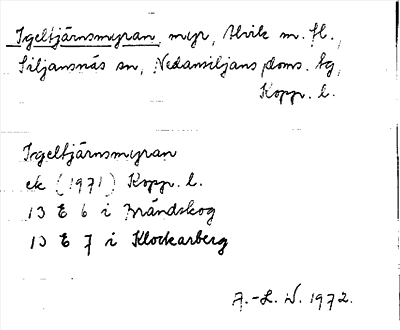 Igeltjärnsmyran, myr, Alvik m. fl.,
Siljansnäs sn, Nedansiljans doms. tg,
Kopp. l.
Igeltjärnsmyran
ek (1971) Kopp. l.
13 E 6 i Brändskog
13 E 7 i Klockarberg
A.-L. W. 1972.